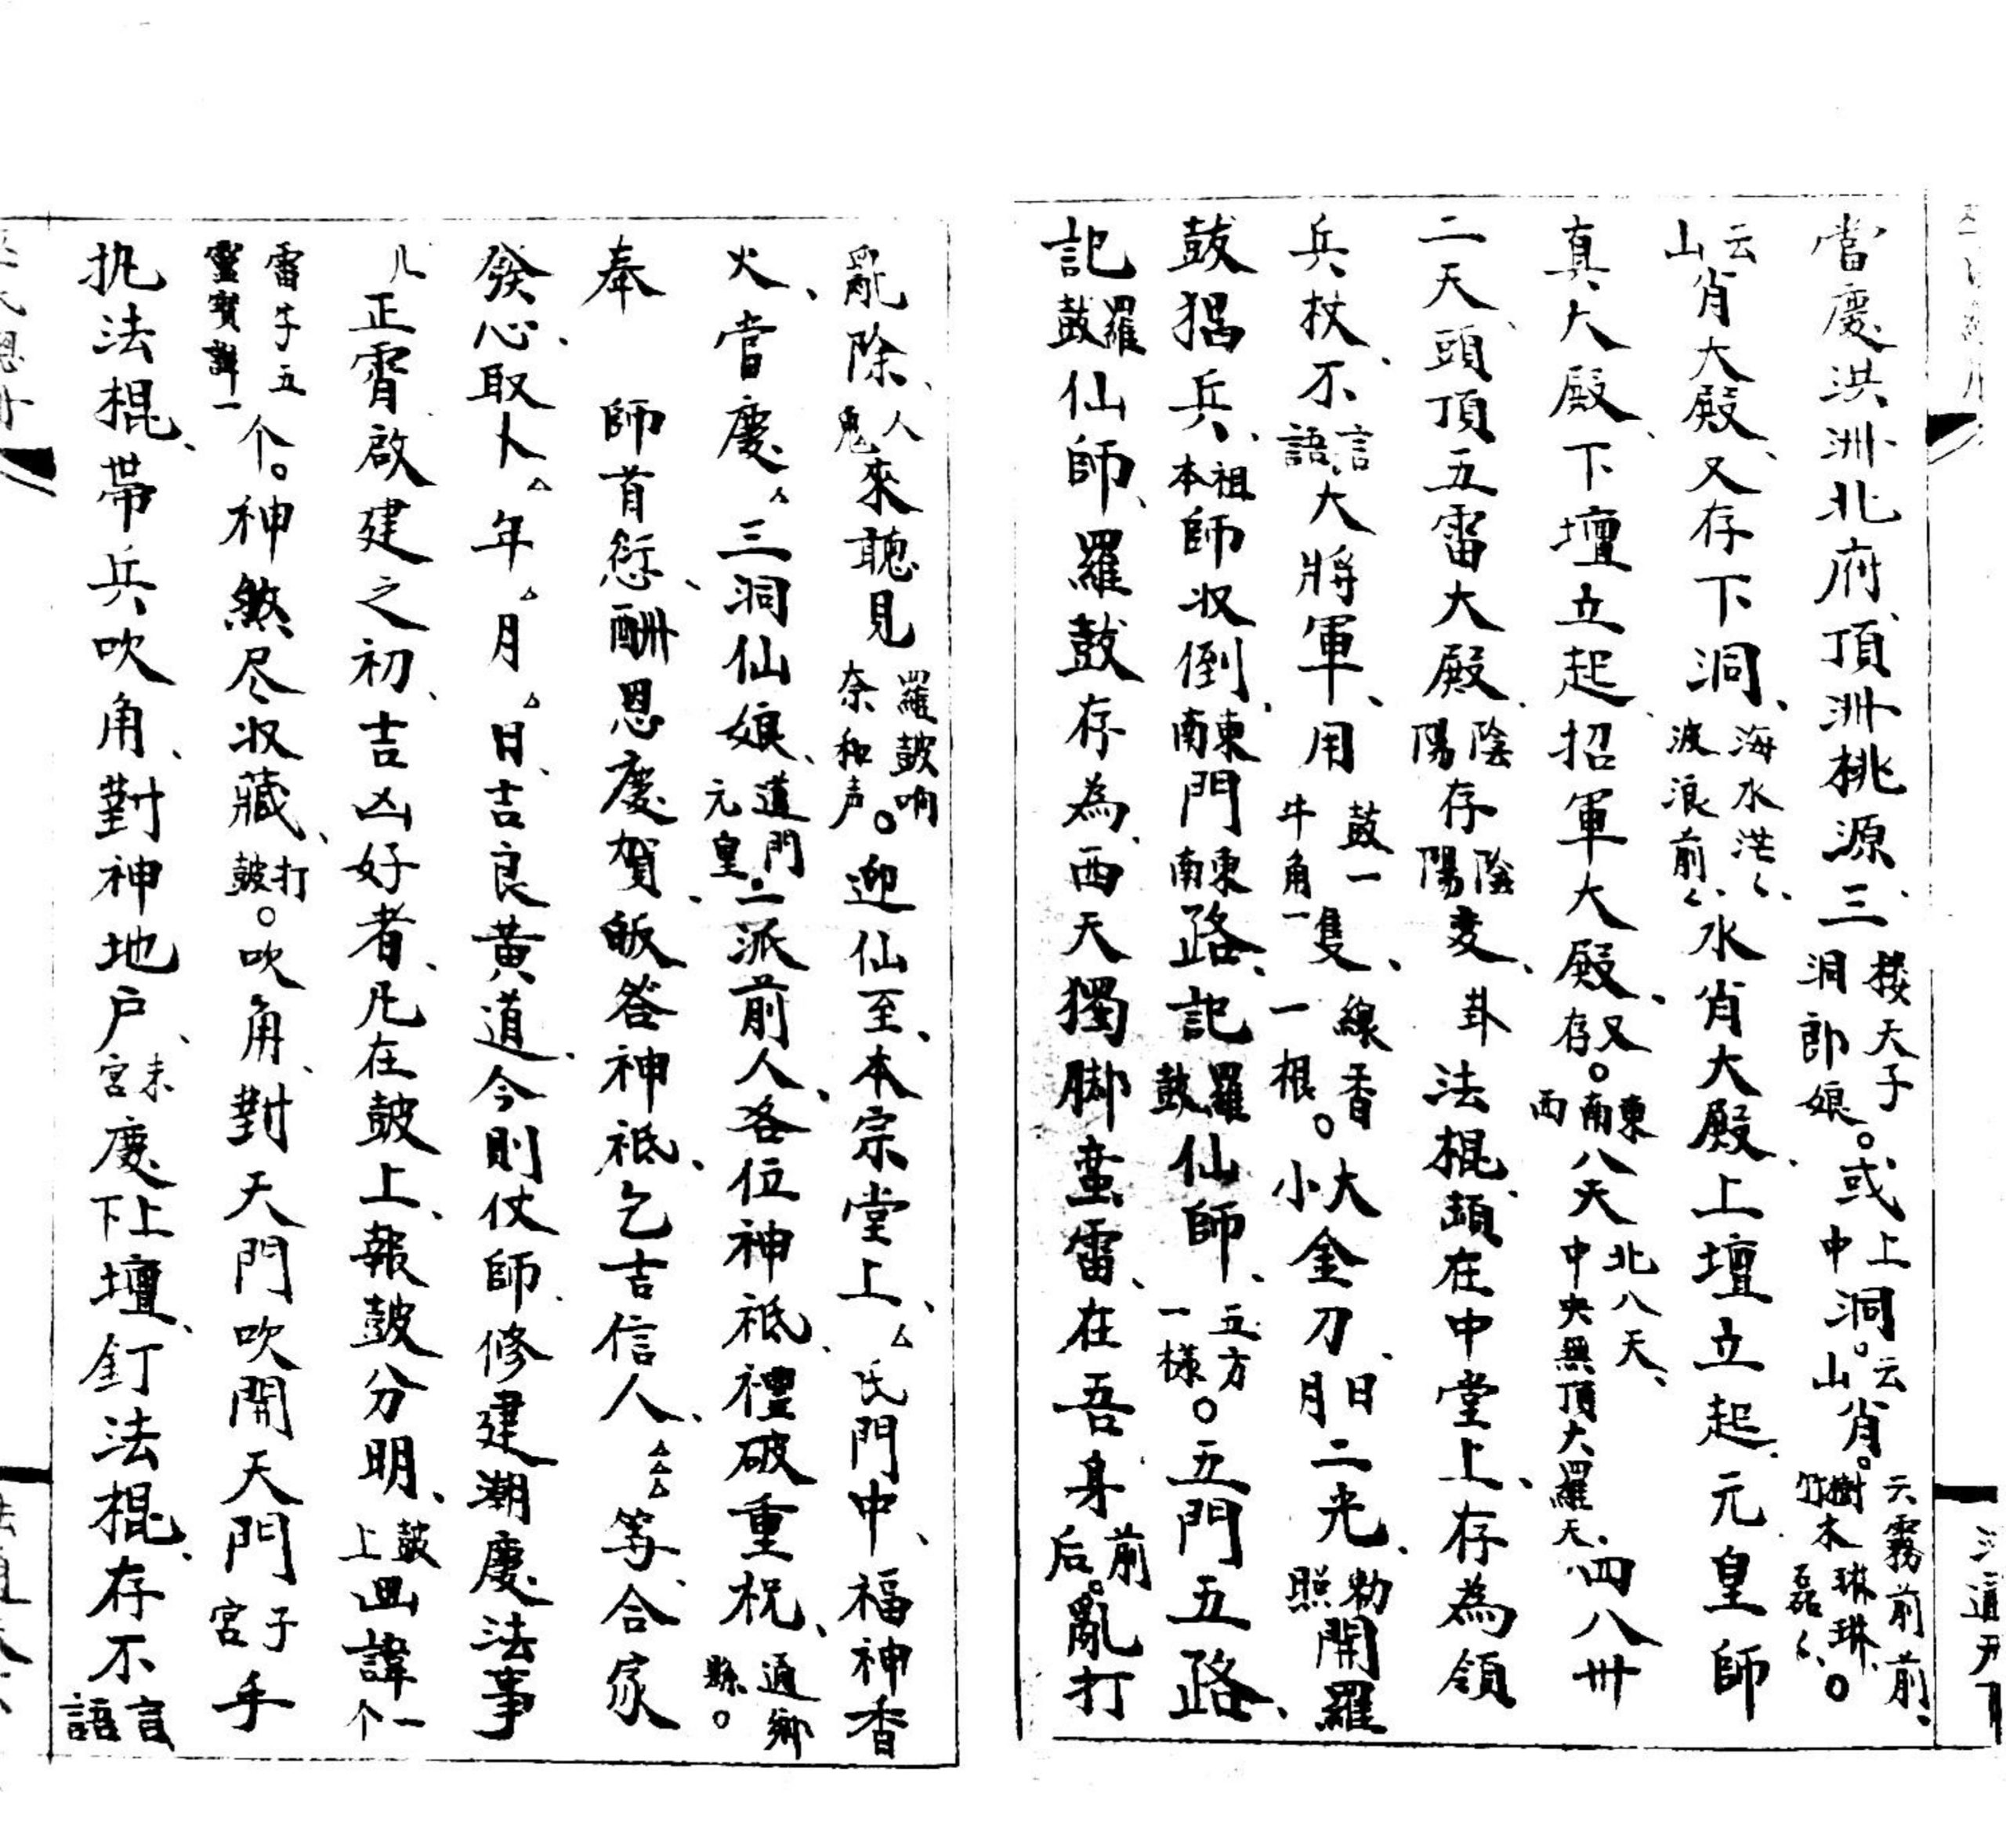 當慶洪洲北府頂洲桃源三樓天子洞郎娘。或上中洞。云山肖。云霧前前、樹木琳琳、竹磊々。
云山肖大殿、又存下洞、海水茫々、波浪前々、水肖大殿、上壇立起、元皇師
真大殿、下壇立起招軍大殿、又存。東南西八天北八天、中央無頂大羅天、四八卅
二天、頭頂五雷大殿、陰陽存陰陽变、卦法棍、頭在中堂上、存為領
兵杖、不言語大將軍、用鼓一隻、牛角一隻、線香一根。大小金刀、日月二光、勅照開羅
鼓猖兵、祖本師收倒、東南門東南路、記羅鼓仙師、五方一樣。五門五路、
記羅鼓仙師、羅鼓存為、西天獨脚蛮雷、在吾身前后。亂打
亂除、人鬼來聽見羅鼓响奈和声。迎仙至、本宗堂上、△氏門中、福神香
火、當慶△三洞仙娘、道門元皇二派前人、各位神祗、禮破重祝、通鄉縣。
奉 師首愆、酬恩慶賀、皈答神祗、乞吉信人、△△△等、合家
發心、取卜△年△月△日、吉良黃道、今則仗師、修建潮慶法事
儿正霄、啟建之初、吉凶好者、凡在鼓上、報鼓分明、鼓上画諱一个
雷字五、靈寶諱一个。神煞尽收藏、打鼓。吹角、對天門吹開天門子宮手
执法棍、帶兵吹角、對神地户、未宮慶上下壇、釘法棍、存不言語